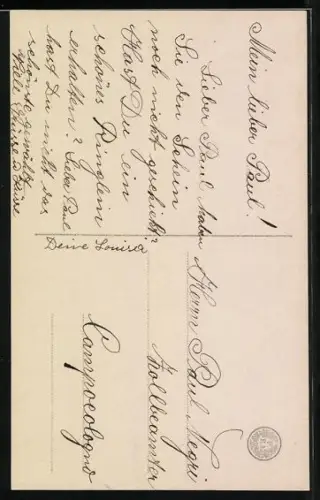 Mein lieber Paul!
Lieber Paul haben
Sie den Schein
noch nicht geschickt?
Hast Du ein
schönes Ringlein
erhalten? Lieber Paul
hast Du nicht das
schönste gewählt
Viele Grüsse u. Küsse
Deine Louise
Herrn Paul Negri
Zollbeamter
Campocologno